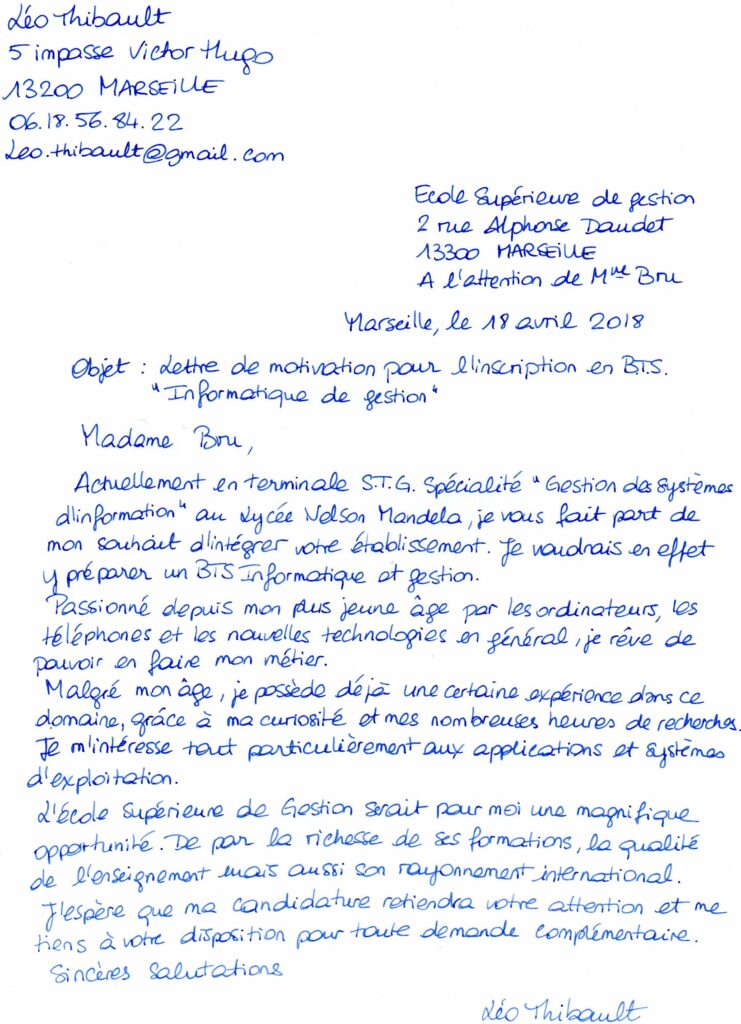 Léo Thibault
5 impasse Victor Hugo
13200 MARSEILLE
06.18.56.84.22
Leo.thibault@gmail.com
Ecole Supérieure de gestion
2 rue Alphonse Daudet
13300 MARSEILLE
A l'attention de Mme Bru
Marseille, le 18 avril 2018
Objet : Lettre de motivation pour l'inscription en BTS.
"Informatique de gestion"
Madame Bru,
Actuellement en terminale S.T.G. Spécialité "Gestion des Systèmes
d'information" au Lycée Nelson Mandela, je vous fait part de
mon souhait d'intégrer votre établissement. Je voudrais en effet
y préparer un BTS Informatique et gestion.
Passionné depuis mon plus jeune âge par les ordinateurs, les
téléphones et les nouvelles technologies en général, je rêve de
pouvoir en faire mon métier.
Malgré mon âge, je possède déjà une certaine expérience dans ce
domaine, grâce à ma curiosité et mes nombreuses heures de recherches.
Je m'intéresse tout particulièrement aux applications et systèmes
d'exploitation.
L'école Supérieure de Gestion serait pour moi une magnifique
opportunité. De par la richesse de ses formations, la qualité
de l'enseignement mais aussi son rayonnement international.
J'espère que ma candidature retiendra votre attention et me
tiens à votre disposition pour toute demande complémentaire.
Sincères Salutations
Léo Thibault